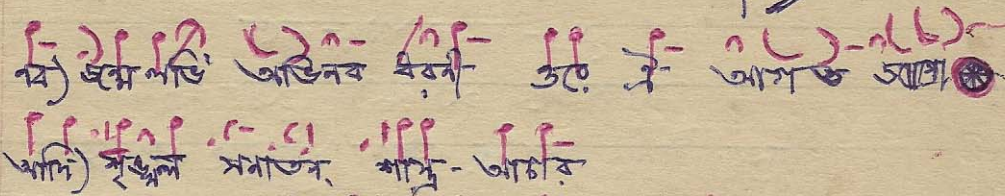 নব) জন্ম লভি অভিনব ধরণী ওরে ঐ আগত
আদি) শৃঙ্খল সনাতন্ শাস্ত্র - আচার